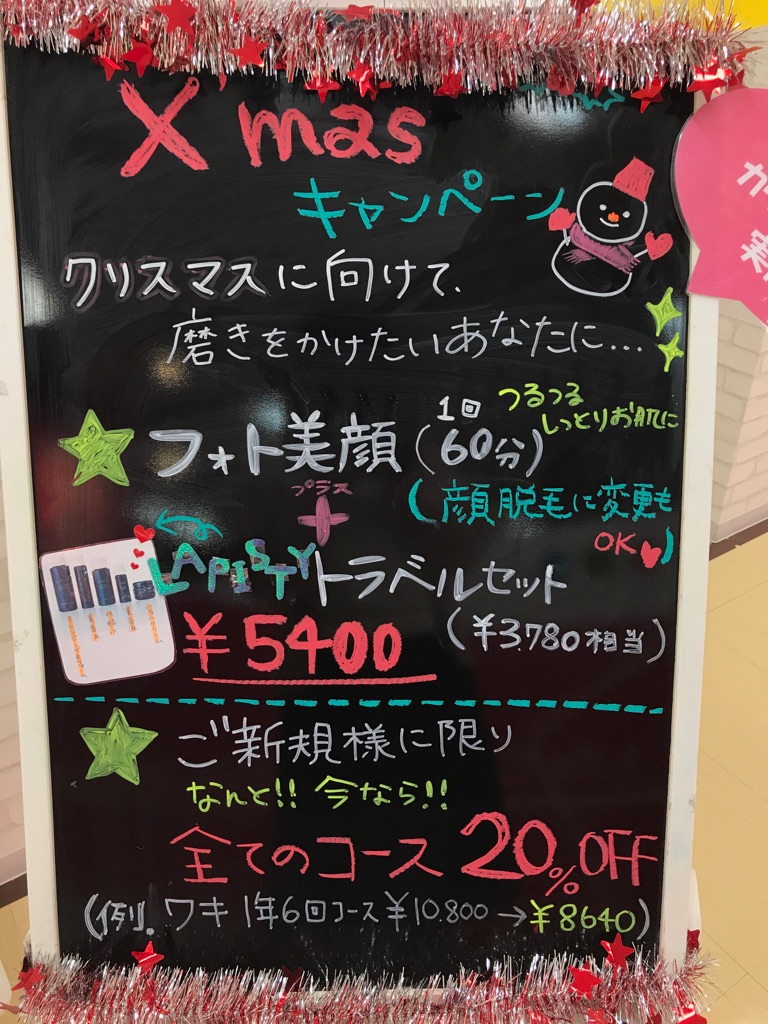 Xmas
キャンペーン
クリスマスに向けて、
磨きをかけたいあなたに…
フォト美顔(1回60分)
つるつる
しっとりお肌に
(顔脱毛に変更も
OK)
プラス
+
LAPISTYトラベルセット
¥5400
(¥3.780相当)
ご新規様に限り
なんと!! 今なら!!
全てのコース 20%OFF
(例. ワキ 1年6回コース¥10.800→¥8640)